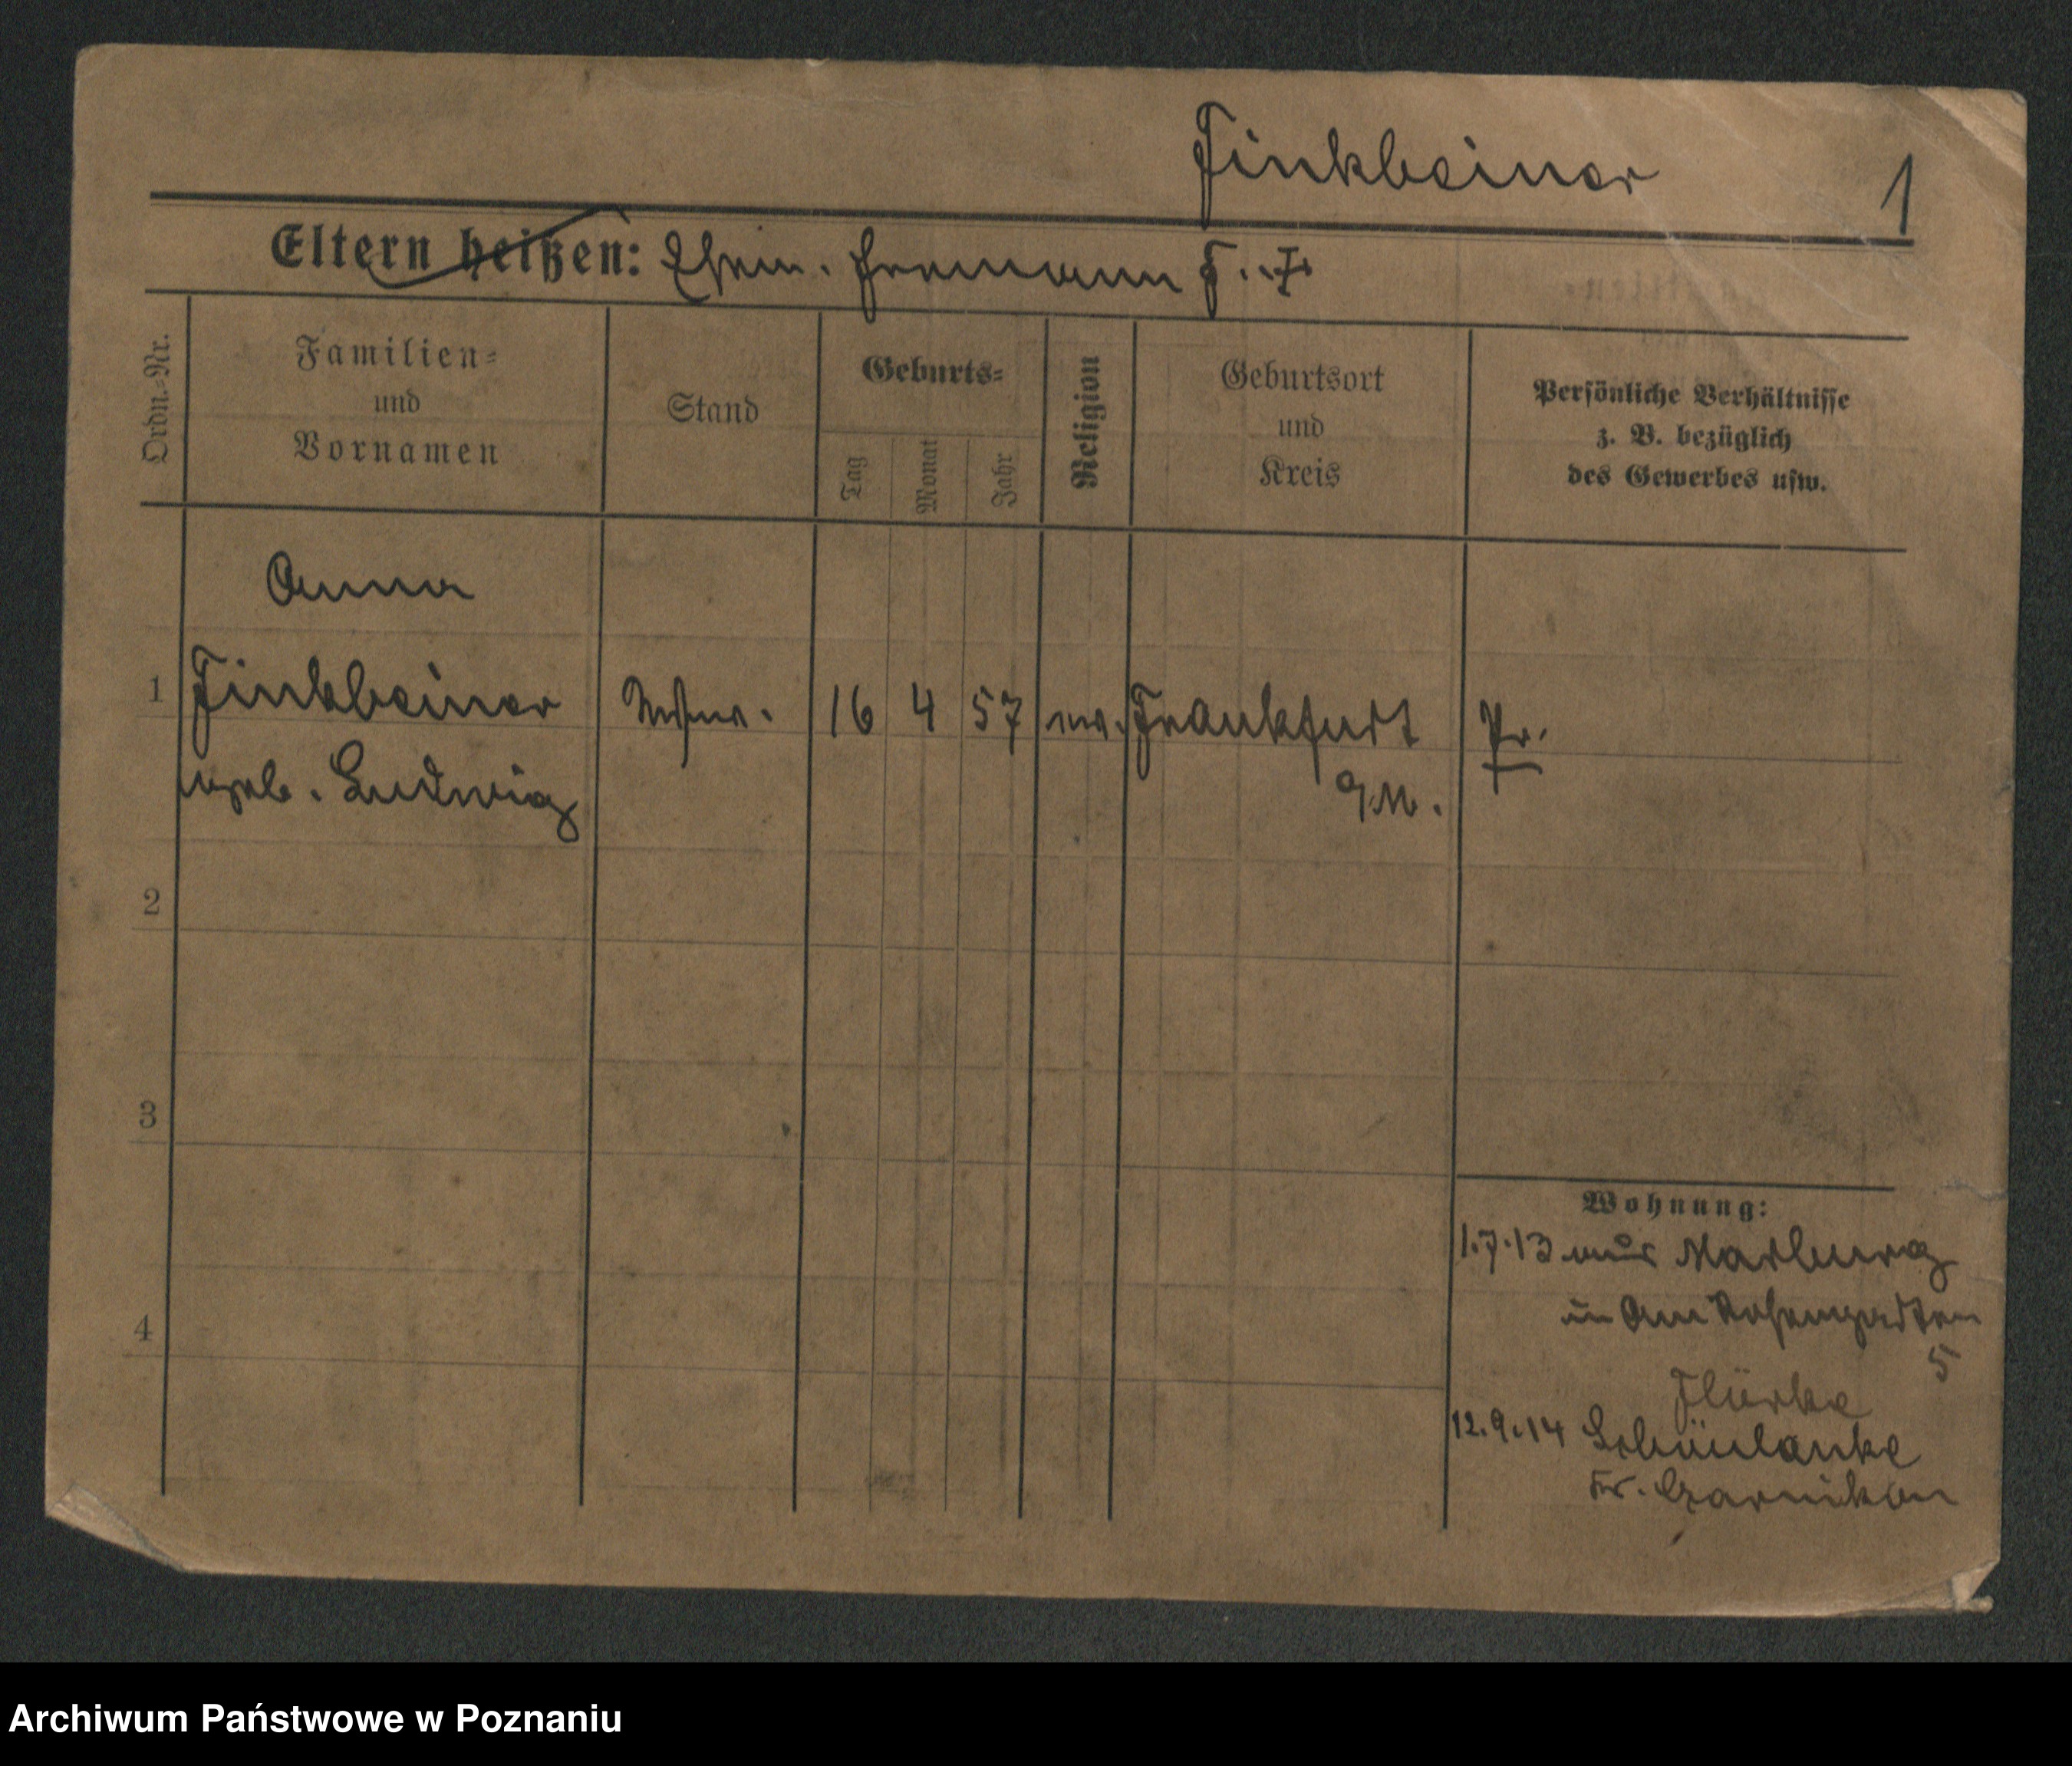 Finkbeiner 1
Eltern heißen: Ehem. Hermann F. †
Ordn.-Nr.
Familien-
und
Vornamen
Stand
Geburts-
Tag
Monat
Jahr
Religion
Geburtsort
und
Kreis
Persönliche Verhältnisse
z. B. bezüglich
des Gewerbes usw.
Anna
1 Finkbeiner Wwe. 16 4 57 ev. Frankfurt Pr.
geb. Ludwig a/M.
2
3
4
Wohnung:
1.7.13 aus Marburg
in Am Rosengarten
5
12.9.14 Schönlanke
Kr. Czarnikau
Archiwum Państwowe w Poznaniu